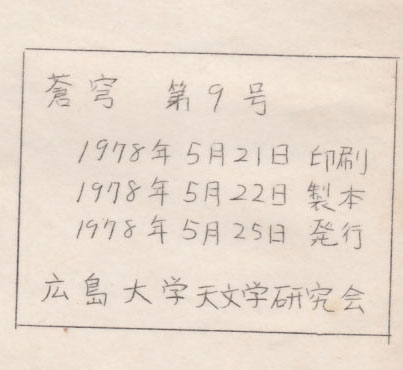 蒼穹 第9号
1978年5月21日 印刷
1978年5月22日 製本
1978年5月25日 発行
広島大学天文学研究会